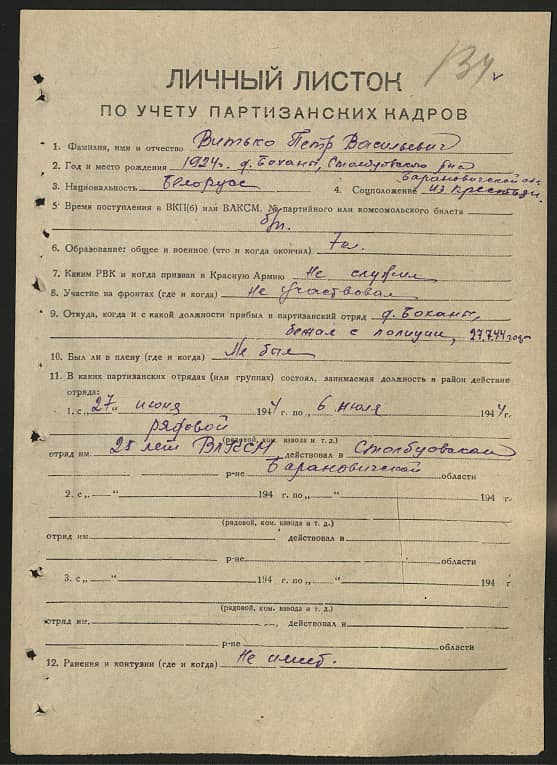 134
ЛИЧНЫЙ ЛИСТОК
ПО УЧЕТУ ПАРТИЗАНСКИХ КАДРОВ
1. Фамилия, имя и отчество Витько Петр Васильевич
2. Год и место рождения 1924г. д. Боканы, Столбцовского р-на
Барановичской об.
3. Национальность Белорусс 4. Соцположение из крестьян.
5. Время поступления в ВКП(б) или ВЛКСМ, № партийного или комсомольского билета
б/п.
6. Образование: общее и военное (что и когда окончил) 7 кл.
7. Каким РВК и когда призван в Красную Армию Не служил
8. Участие на фронтах (где и когда) Не участвовал
9. Откуда, когда и с какой должности прибыл в партизанский отряд д. Боканы,
бежал с полиции, 27.7.44 года
10. Был ли в плену (где и когда) Не был
11. В каких партизанских отрядах (или группах) состоял, занимаемая должность и район действия
отряда:
1. с „27" июня 1944 г. по „ 6 июля 1944г.
рядовой
(рядовой, ком. взвода и т. д.)
отряд им. 25 лет ВЛКСМ действовал в Столбцовском
р-не Барановичской области
2. с „ — " 194 г. по „ — " 194 г.
(рядовой, ком. взвода и т. д.)
отряд им. действовал в
р-не области
3. с „ " 194 г. по „ " 194 г
(рядовой, ком. взвода и т. д.)
отряд им. , действовал в
р-не области
12. Ранения и контузии (где и когда) Не имеет.